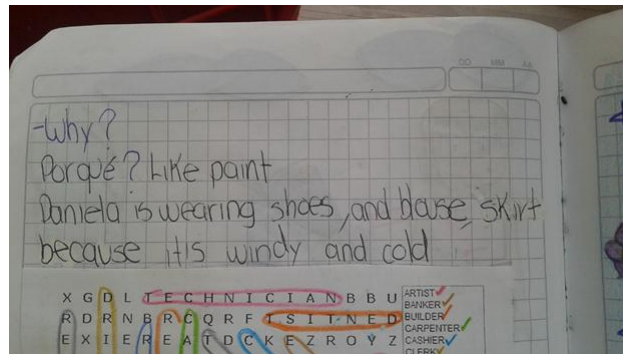 DD MM AA
-Why?
Porqué? Like paint
Daniela is wearing shoes, and blouse, skirt
because it is windy and cold
X G D L T E C H N I C I A N B B U
R D R N B R C Q R F T S I T N E D
E X I E R E A T D C K E Z R O Y Z
ARTIST
BANKER
BUILDER
CARPENTER
CASHIER
CLERK